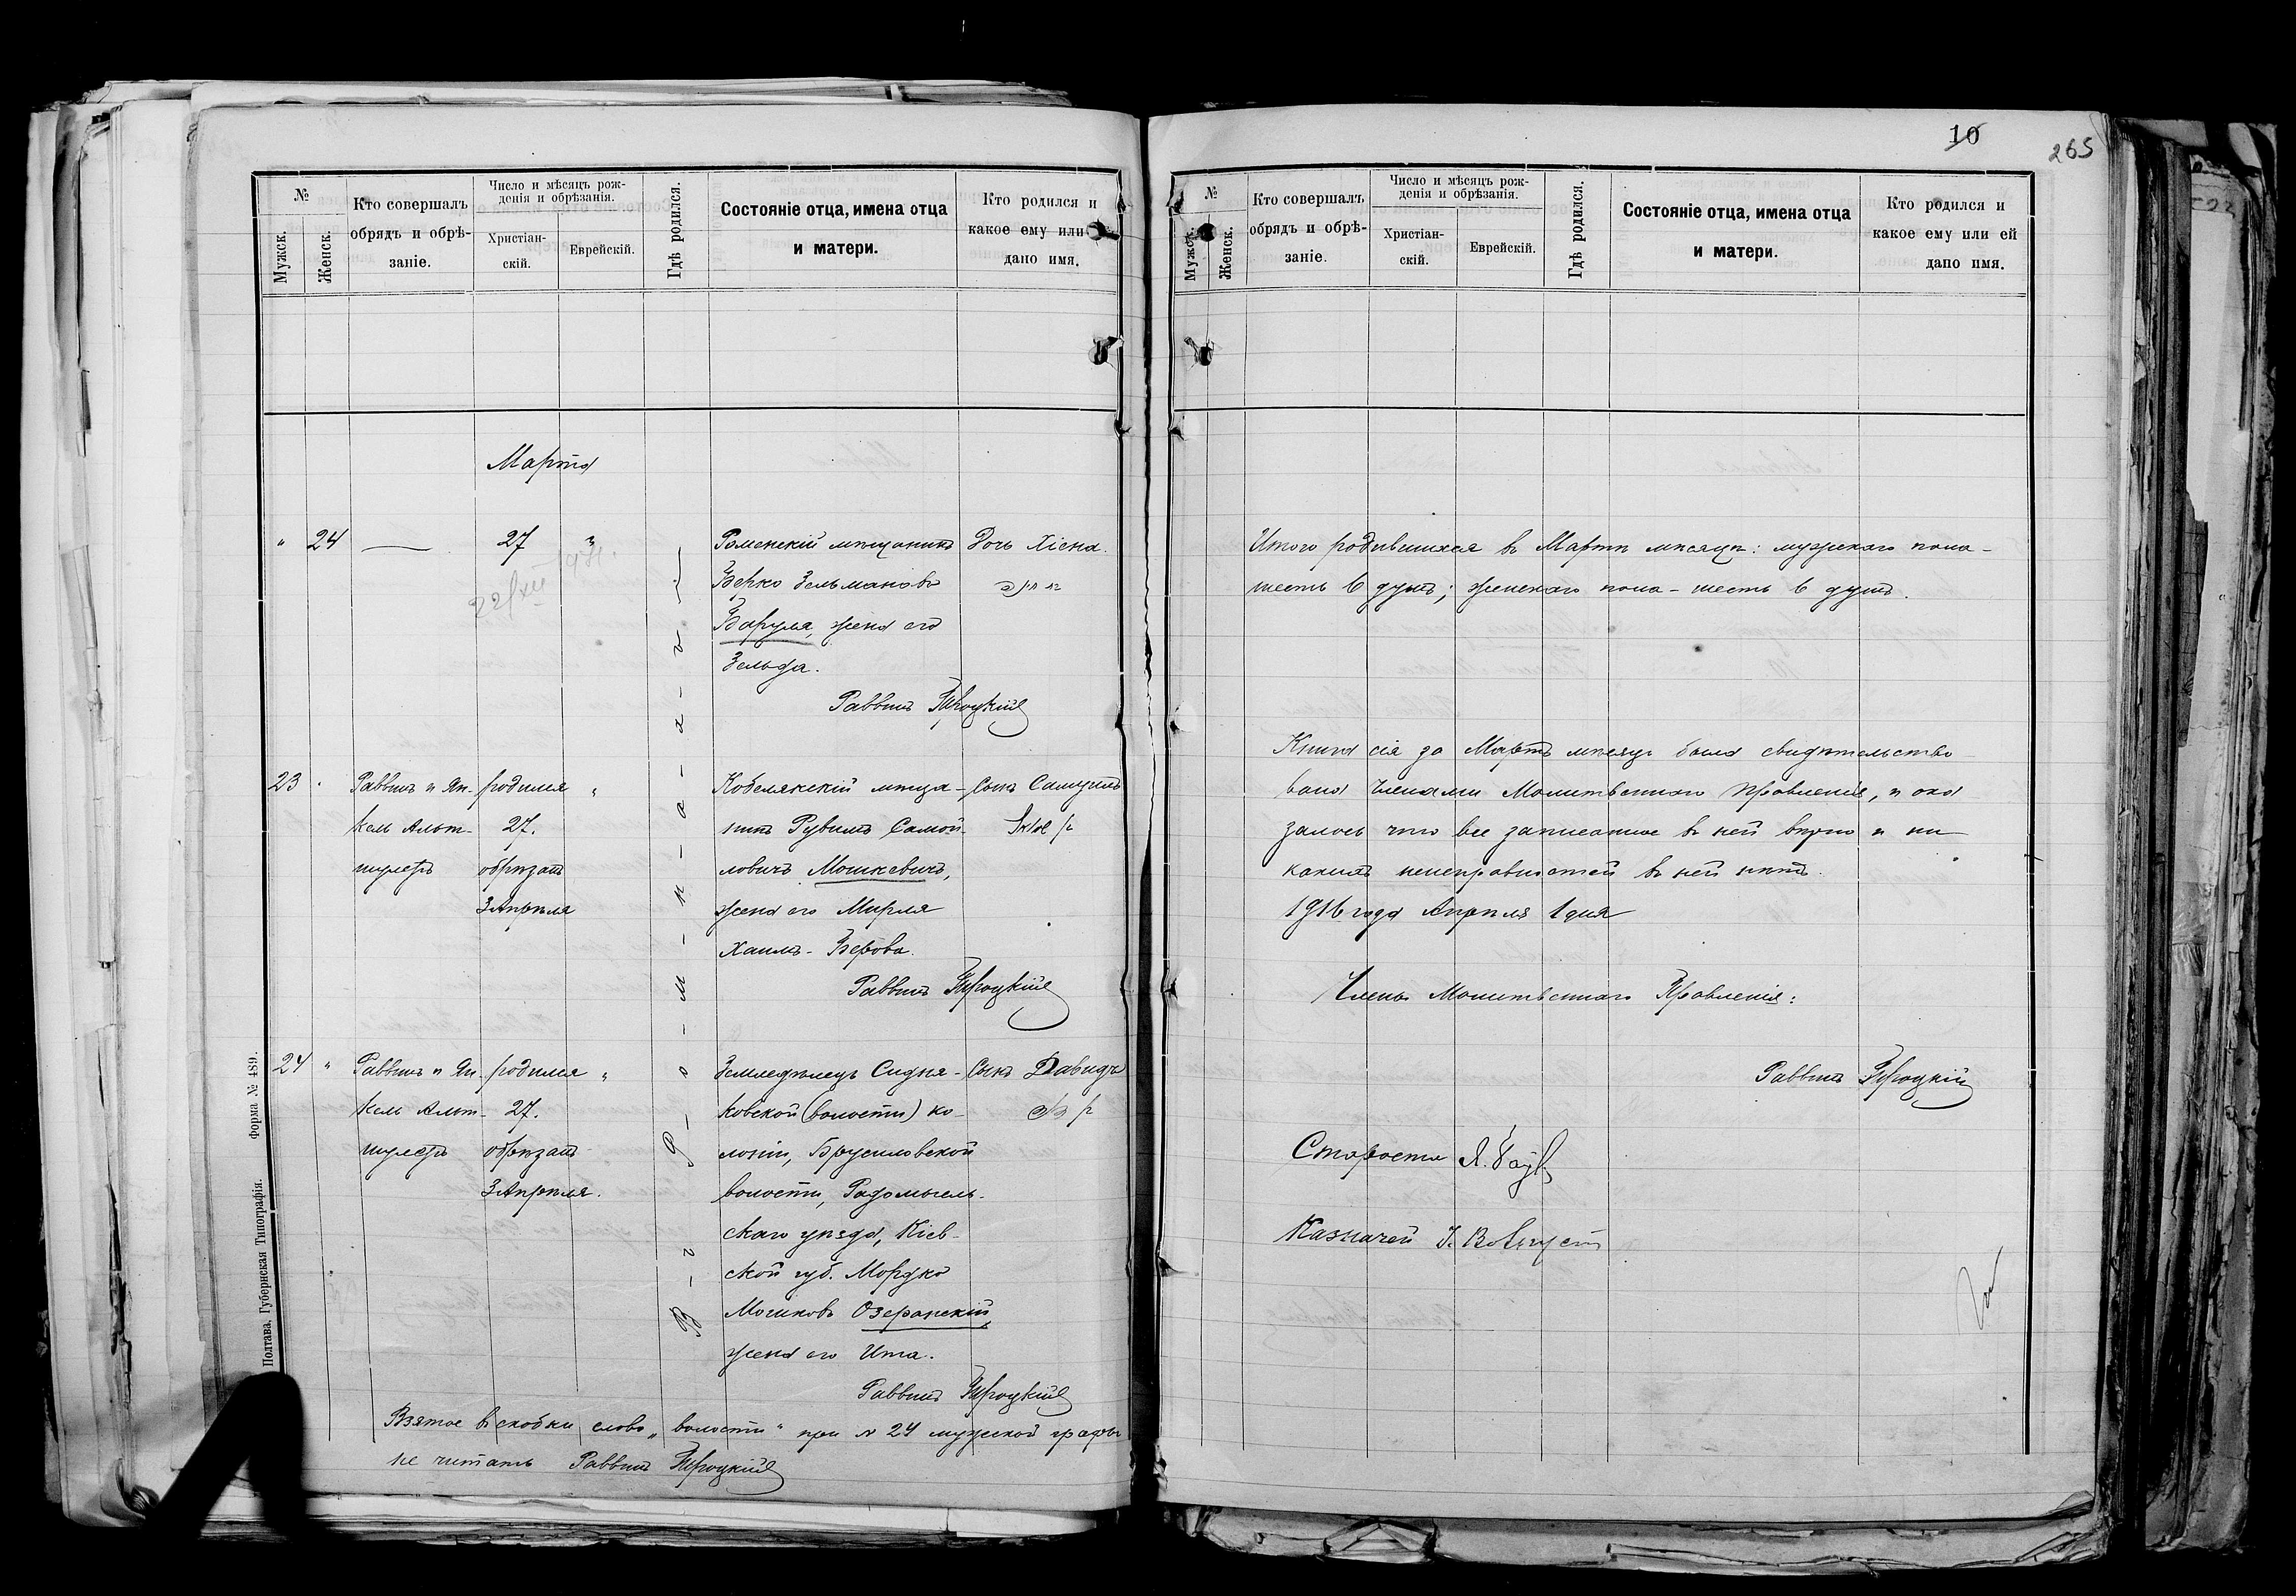 10
265
№
Мужск.
Женск.
Кто совершалъ
обрядъ и обрѣ-
заніе.
Число и мѣсяцъ рож-
денія и обрѣзанія.
Христіан-
скій.
Еврейскій.
Гдѣ родился.
Состояніе отца, имена отца
и матери.
Кто родился и
какое ему или
дано имя.
Марта
" 24 — 27 "
Роменскій мѣщанинъ
Берко Зельмановъ
Баруля, жена его
Зельда.
Дочь Хіена.
Раввинъ Троцкій
23
Раввинъ и Ян-
кель Альт-
шулеръ
родился
27.
обрѣзанъ
3 Апрѣля
"
Кобелякскій мѣща-
нинъ Рувимъ Самой-
ловичъ Мошкевичъ,
жена его Мирля
Хаимъ-Берова.
Сынъ Самуилъ
Раввинъ Троцкій
24 "
Раввинъ и Ян-
кель Альт-
шулеръ
родился
27.
обрѣзанъ
3 Апрѣля.
"
Земледѣлецъ Сидня-
ковской (волости) ко-
лоніи, Брусиловской
волости, Радомысль-
скаго уѣзда, Кіев-
ской губ. Мордко
Озеранскій,
жена его Ита.
Сынъ Давидъ
Раввинъ Троцкій
Взятое въ скобки слово „волости" при № 24 мужской графы
не читать Раввинъ Троцкій
Форма № 489.
Полтава, Губернская Типографія.
№
Мужск.
Женск.
Кто совершалъ
обрядъ и обрѣ-
заніе.
Число и мѣсяцъ рож-
денія и обрѣзанія.
Христіан-
скій.
Еврейскій.
Гдѣ родился.
Состояніе отца, имена отца
и матери.
Кто родился и
какое ему или ей
дано имя.
Итого родившихся въ Мартѣ мѣсяцѣ: мужскаго пола-
шесть 6 душъ; женскаго пола - шесть 6 душъ.
Книга сія за Мартъ мѣсяцъ была свидѣтельство-
вана Членами Молитвеннаго Правленія, и ока
залось что все записанное въ ней вѣрно и ни-
какихъ неисправностей въ ней нѣтъ.
1916 года Апрѣля 1 дня
Члены Молитвеннаго Правленія:
Раввинъ Троцкій
Староста
Казначей